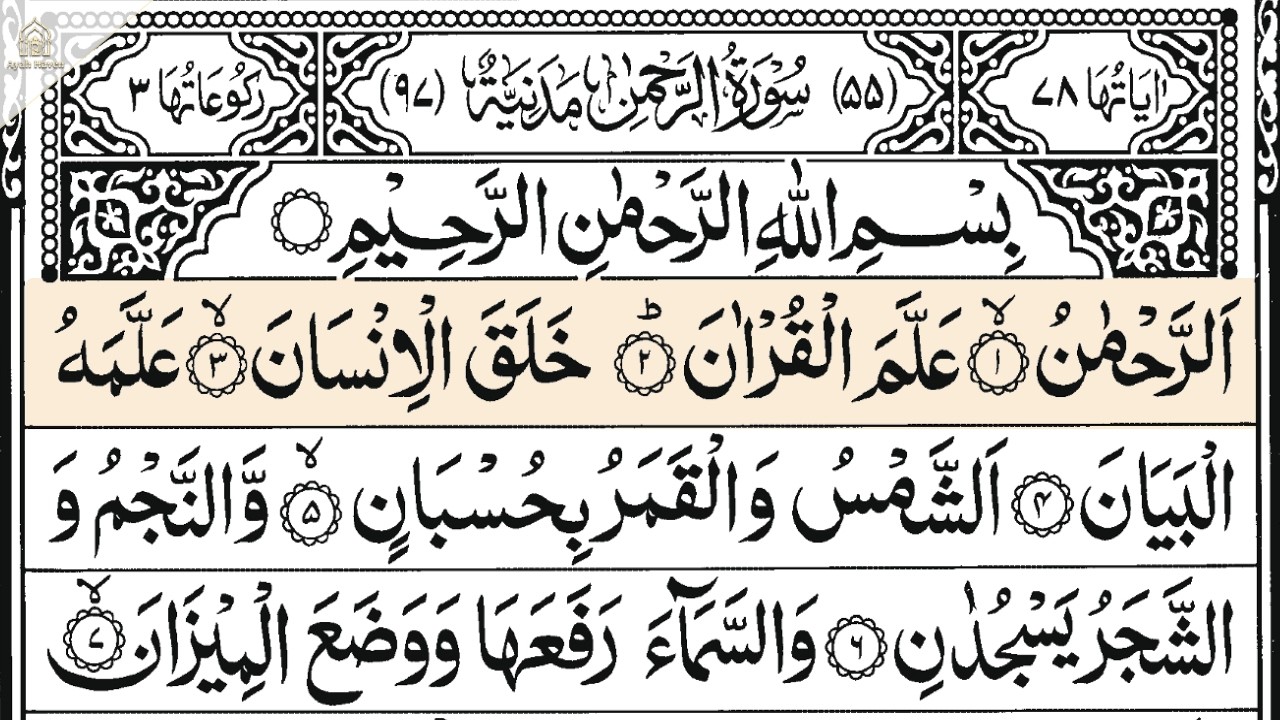 اٰيَاتُهَا ٧٨ (۵۵) سُوْرَةُ الرَّحْمٰنِ مَدَنِيَّةٌ (٩٧) رُكُوْعَاتُهَا ٣
بِسْمِ اللّٰهِ الرَّحْمٰنِ الرَّحِيْمِ
اَلرَّحْمٰنُ ۙ‏﴿۱﴾ عَلَّمَ الْقُرْاٰنَ ؕ‏﴿۲﴾ خَلَقَ الْاِنْسَانَ ۙ‏﴿۳﴾ عَلَّمَهُ
الْبَيَانَ ﴿۴﴾ اَلشَّمْسُ وَالْقَمَرُ بِحُسْبَانٍ ۙ‏﴿۵﴾ وَّالنَّجْمُ وَ
الشَّجَرُ يَسْجُدٰنِ ﴿۶﴾ وَالسَّمَآءَ رَفَعَهَا وَوَضَعَ الْمِيْزَانَ ۙ‏﴿۷﴾
Ayah Haven